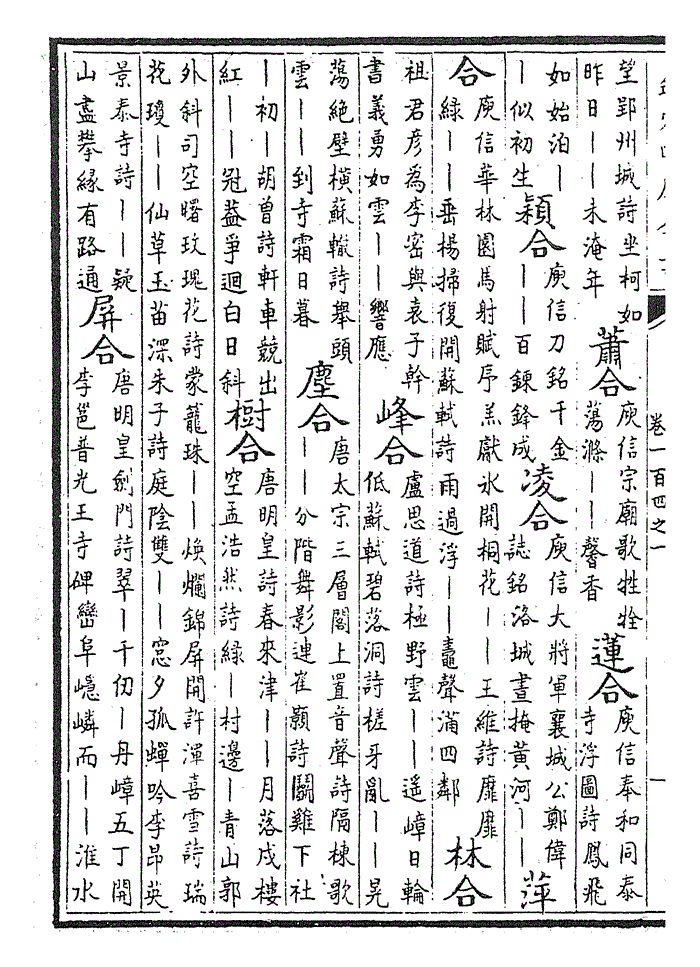 卷一百四之一
一
望郢州城詩坐柯如
昨日——未淹年
蕭合
庾信宗廟歌牲牷
蕩滌——馨香
蓮合
庾信奉和同泰
寺浮圖詩鳳飛
如始泊—
—似初生
穎合
庾信刀銘千金
——百鍊鋒成
凌合
庾信大將軍襄城公鄭偉
誌銘洛城晝掩黃河——
萍
合
庾信華林園馬射賦序羔獻冰開桐花——王維詩靡靡
綠——垂楊掃復開蘇軾詩雨過浮——鼃聲滿四鄰
林合
祖君彥為李密與袁子幹
書義勇如雲——響應
峰合
盧思道詩極野雲——遥嶂日輪
低蘇軾碧落洞詩槎牙亂——晃
蕩絕壁橫蘇轍詩舉頭
雲——到寺霜日暮
塵合
唐太宗三層閣上置音聲詩隔棟歌
——分階舞影連崔顥詩鬭雞下社
—初—胡曾詩軒車競出
紅——冠葢爭迴白日斜
樹合
唐明皇詩春來津——月落戍樓
空孟浩然詩綠—村邊—青山郭
外斜司空曙玫瑰花詩蒙籠珠——煥爛錦屏開許渾喜雪詩瑞
花瓊——仙草玉苗深朱子詩庭陰雙——窓夕孤蟬吟李昂英
景泰寺詩——疑
山盡攀緣有路通
屏合
唐明皇劍門詩翠—千仞—丹嶂五丁開
李邕普光王寺碑巒阜嶾嶙而——淮水